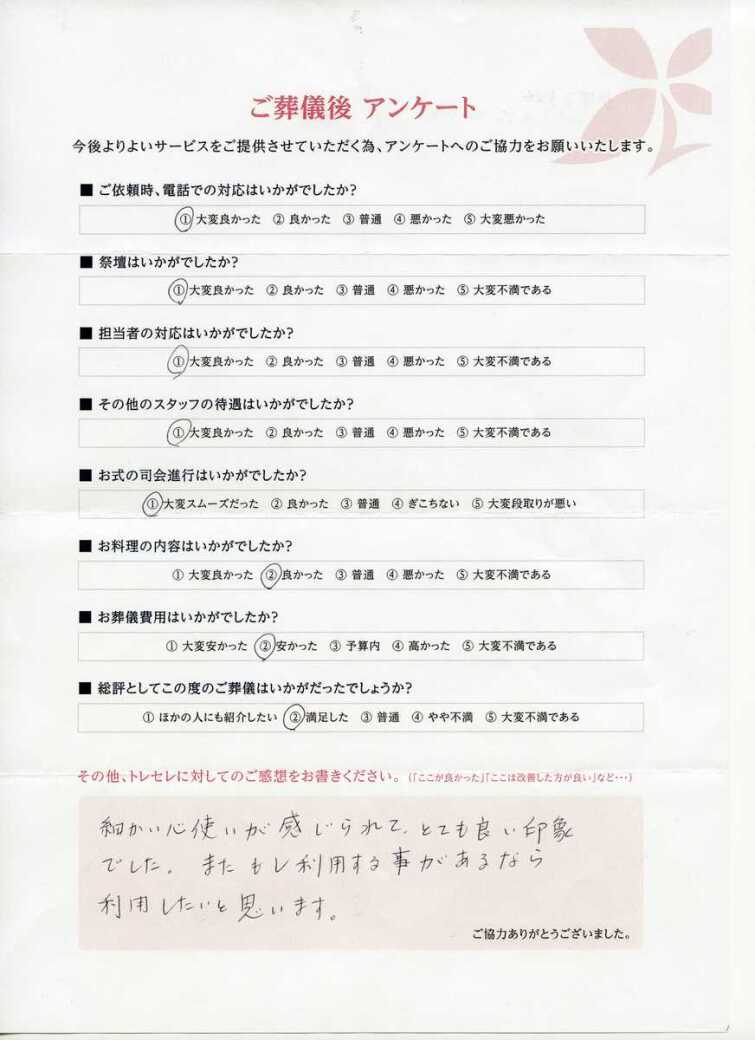 ご葬儀後 アンケート
今後よりよいサービスをご提供させていただく為、アンケートへのご協力をお願いいたします。
■ ご依頼時、電話での対応はいかがでしたか?
① 大変良かった ② 良かった ③ 普通 ④ 悪かった ⑤ 大変悪かった
■ 祭壇はいかがでしたか?
① 大変良かった ② 良かった ③ 普通 ④ 悪かった ⑤ 大変不満である
■ 担当者の対応はいかがでしたか?
① 大変良かった ② 良かった ③ 普通 ④ 悪かった ⑤ 大変不満である
■ その他のスタッフの待遇はいかがでしたか?
① 大変良かった ② 良かった ③ 普通 ④ 悪かった ⑤ 大変不満である
■ お式の司会進行はいかがでしたか?
① 大変スムーズだった ② 良かった ③ 普通 ④ ぎこちない ⑤ 大変段取りが悪い
■ お料理の内容はいかがでしたか?
① 大変良かった ② 良かった ③ 普通 ④ 悪かった ⑤ 大変不満である
■ お葬儀費用はいかがでしたか?
① 大変安かった ② 安かった ③ 予算内 ④ 高かった ⑤ 大変不満である
■ 総評としてこの度のご葬儀はいかがだったでしょうか?
① ほかの人にも紹介したい ② 満足した ③ 普通 ④ やや不満 ⑤ 大変不満である
その他、トレセレに対してのご感想をお書きください。(「ここが良かった」「ここは改善した方が良い」など・・・)
細かい心使いが感じられて、とても良い印象
でした。またもし利用する事があるなら
利用したいと思います。
ご協力ありがとうございました。